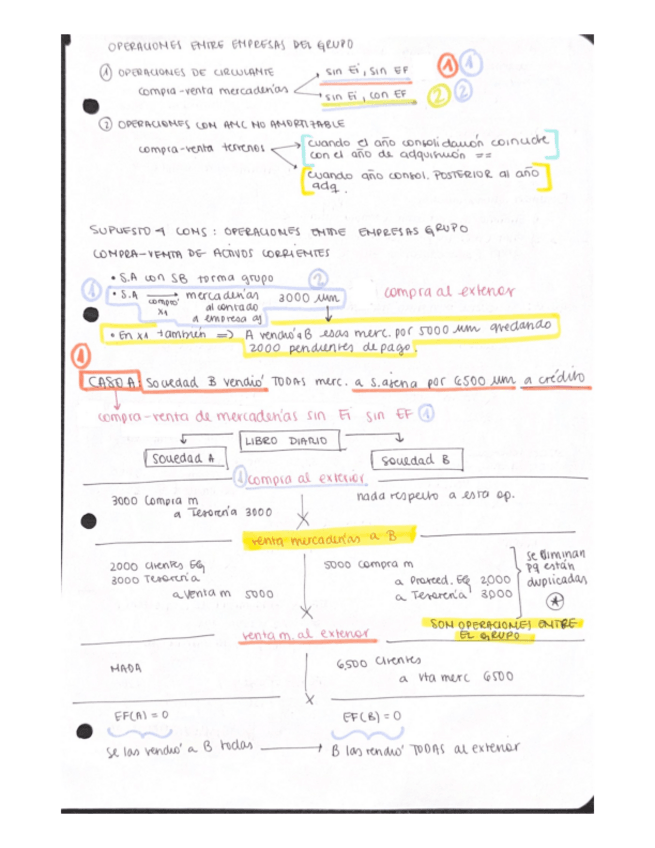 OPERACIONES ENTRE EMPRESAS DEL GRUPO
① OPERACIONES DE CIRCULANTE
compra-venta mercaderías
sin Ei, sin EF ① ①
sin Ei, con EF ② ②
② OPERACIONES CON ANC NO AMORTIZABLE
compra-venta terrenos
cuando el año consolidación coincide
con el año de adquisición ==
cuando año consol. POSTERIOR al año
adq.
SUPUESTO 1 CONS: OPERACIONES ENTRE EMPRESAS GRUPO
COMPRA-VENTA DE ACTIVOS CORRIENTES
• S.A con SB forma grupo ②
① • S.A compró x1 mercaderías 3000 um compra al exterior
al contado
a empresa aj
• En x1 también => A vendió a B esas merc. por 5000 um quedando
2000 pendientes de pago.
①
CASO A: Sociedad B vendió TODAS merc. a s.ajena por 6500 um a crédito
compra-venta de mercaderías sin Ei sin EF ①
LIBRO DIARIO
Sociedad A Sociedad B
① compra al exterior
3000 Compra m nada respecto a esta op.
a Tesorería 3000
venta mercaderías a B
2000 clientes EG 5000 compra m
3000 Tesorería a Proveed. EG 2000
a Venta m 5000 a Tesorería 3000
se eliminan
pq están
duplicadas
*
SON OPERACIONES ENTRE
EL GRUPO
venta m. al exterior
NADA 6500 Clientes
a vta merc 6500
EF(A) = 0 EF(B) = 0
Se las vendió a B todas B las vendió TODAS al exterior